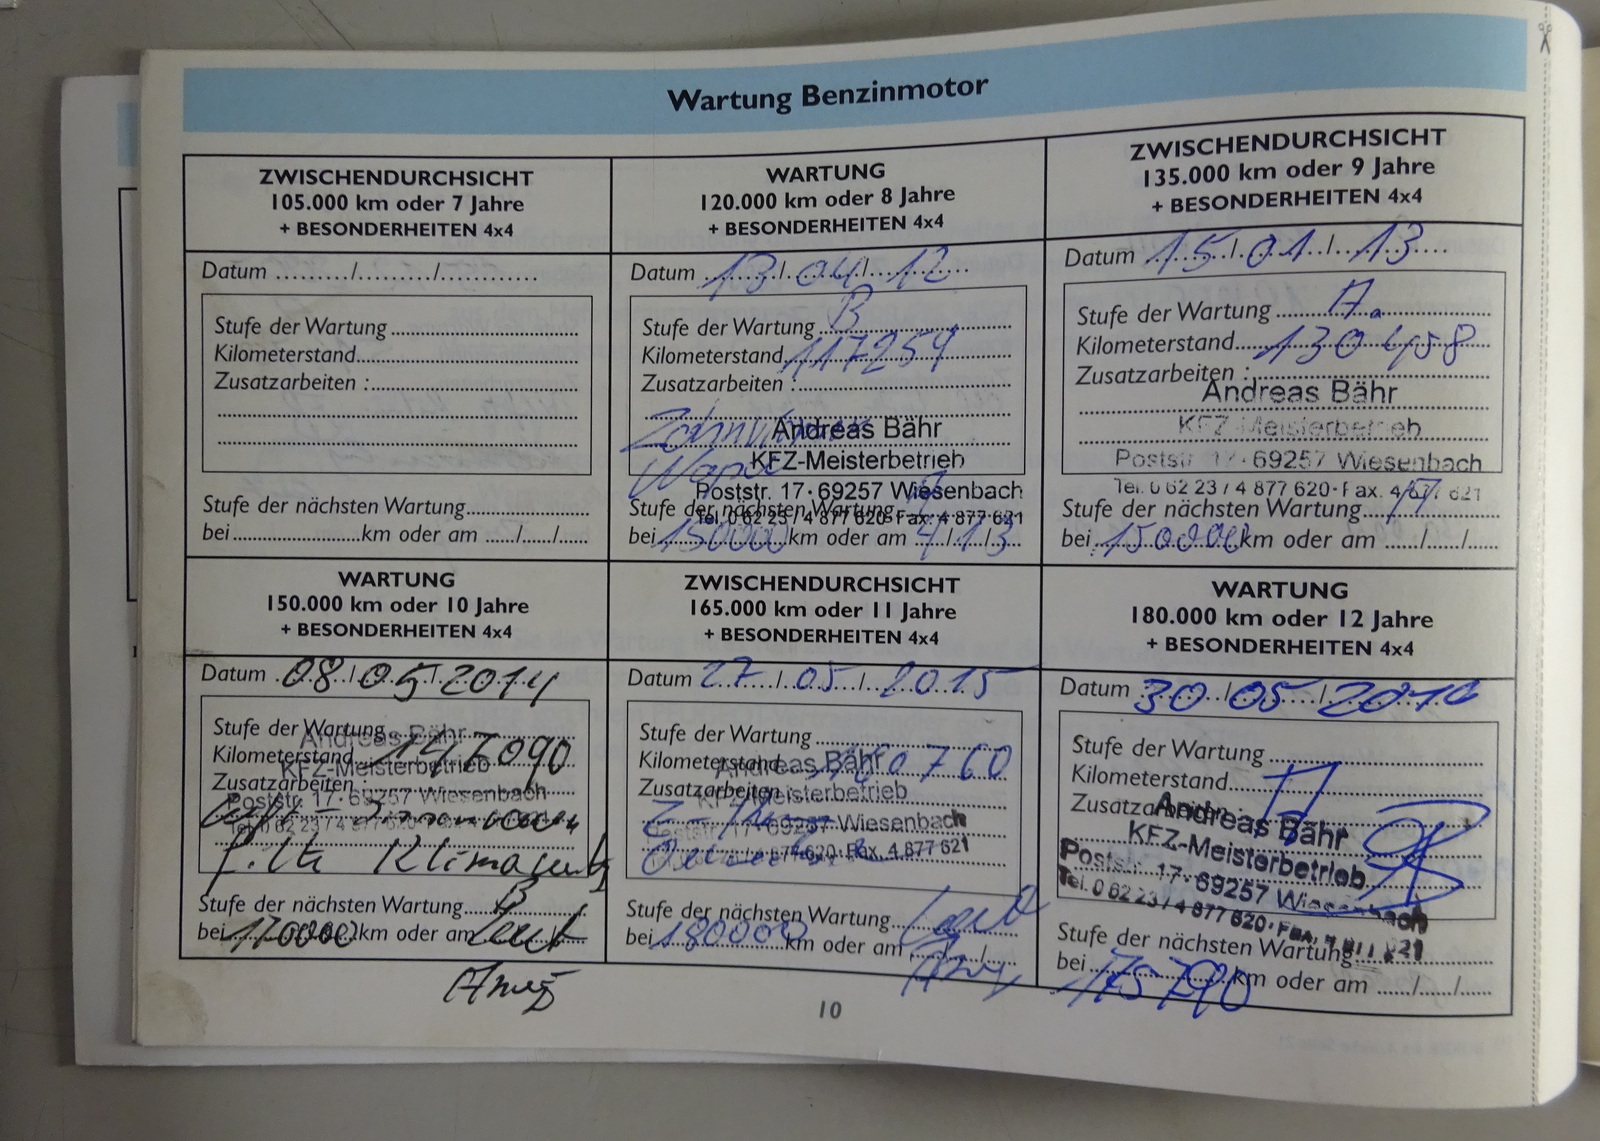 Wartung Benzinmotor
ZWISCHENDURCHSICHT
105.000 km oder 7 Jahre
+ BESONDERHEITEN 4x4
Datum ........./........./............
Stufe der Wartung
Kilometerstand
Zusatzarbeiten :
Stufe der nächsten Wartung
bei km oder am ...../...../.....
WARTUNG
120.000 km oder 8 Jahre
+ BESONDERHEITEN 4x4
Datum 13/04/12
Stufe der Wartung B
Kilometerstand 117254
Zusatzarbeiten :
Andreas Bähr
KFZ-Meisterbetrieb
Poststr. 17 · 69257 Wiesenbach
Stufe der nächsten Wartung
Tel. 0 62 23 / 4 877 620 · Fax: 4 877 621
bei km oder am 4/13
ZWISCHENDURCHSICHT
135.000 km oder 9 Jahre
+ BESONDERHEITEN 4x4
Datum 15/01/13
Stufe der Wartung A.
Kilometerstand 130458
Zusatzarbeiten :
Andreas Bähr
KFZ-Meisterbetrieb
Poststr. 17 · 69257 Wiesenbach
Tel. 0 62 23 / 4 877 620 · Fax. 4 877 621
Stufe der nächsten Wartung
bei 150000 km oder am ...../...../.....
WARTUNG
150.000 km oder 10 Jahre
+ BESONDERHEITEN 4x4
Datum 08/05/2014
Stufe der Wartung
Andreas Bähr
Kilometerstand 147090
KFZ-Meisterbetrieb
Zusatzarbeiten :
Poststr. 17 · 69257 Wiesenbach
Tel. 0 62 23 / 4 877 620
Stufe der nächsten Wartung B
bei 170000 km oder am laut
Anzg
ZWISCHENDURCHSICHT
165.000 km oder 11 Jahre
+ BESONDERHEITEN 4x4
Datum 27/05/2015
Stufe der Wartung
Kilometerstand 160760
Andreas Bähr
Zusatzarbeiten
KFZ-Meisterbetrieb
Poststr. 17 · 69257 Wiesenbach
4 877 620 Fax. 4 877 621
Stufe der nächsten Wartung laut
bei 180000 km oder am
Anzg
WARTUNG
180.000 km oder 12 Jahre
+ BESONDERHEITEN 4x4
Datum 30/05/2016
Stufe der Wartung
Kilometerstand
Zusatzarbeiten :
Andreas Bähr
KFZ-Meisterbetrieb
Poststr. 17 · 69257 Wiesenbach
Tel. 0 62 23 / 4 877 620 · Fax. 4 877 621
Stufe der nächsten Wartung
bei 175790 km oder am ...../...../.....
10